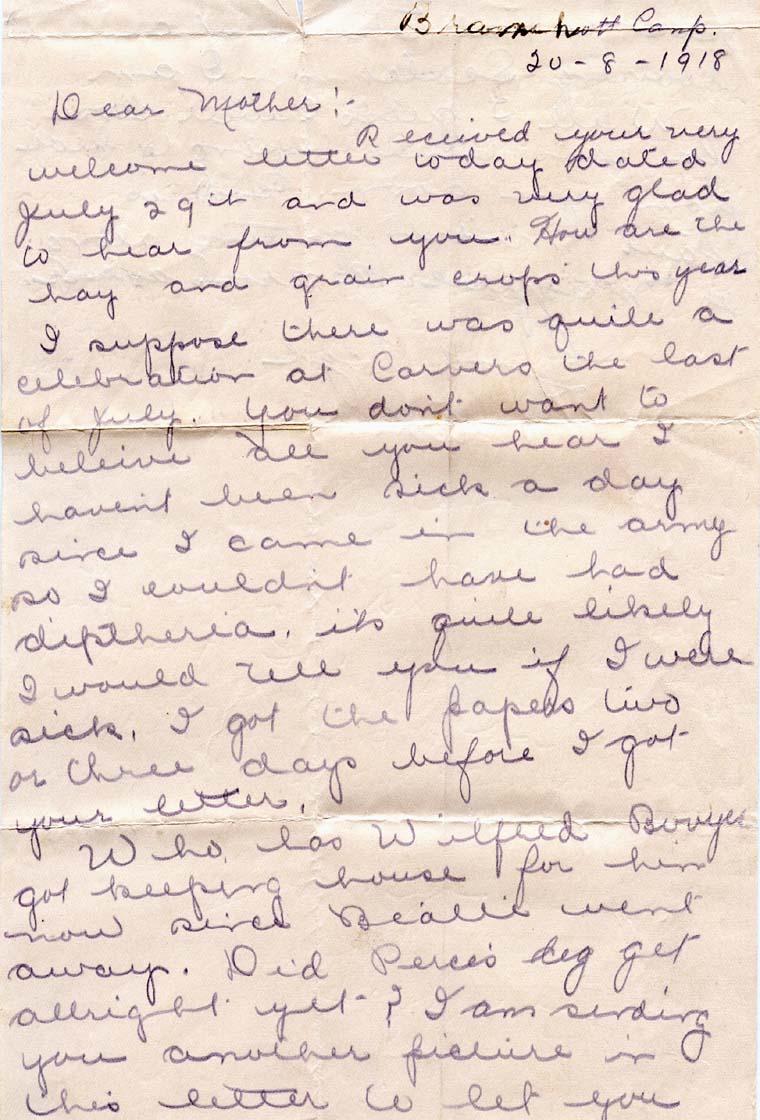 Bramshott Camp.
20-8-1918
Dear Mother!-
Received your very
welcome letter today dated
July 29th and was very glad
to hear from you. How are the
hay and grain crops this year
I suppose there was quite a
celebration at Carvers the last
of July. You don't want to
beleive all you hear I
havent been sick a day
since I came in the army
so I couldn't have had
diptheria. its quite likely
I would tell you if I were
sick. I got the papers two
or three days before I got
your letter.
Who has Wilfred
got keeping house for him
now since went
away. Did Perce's leg get
allright yet? I am sending
you another picture in
this letter to let you